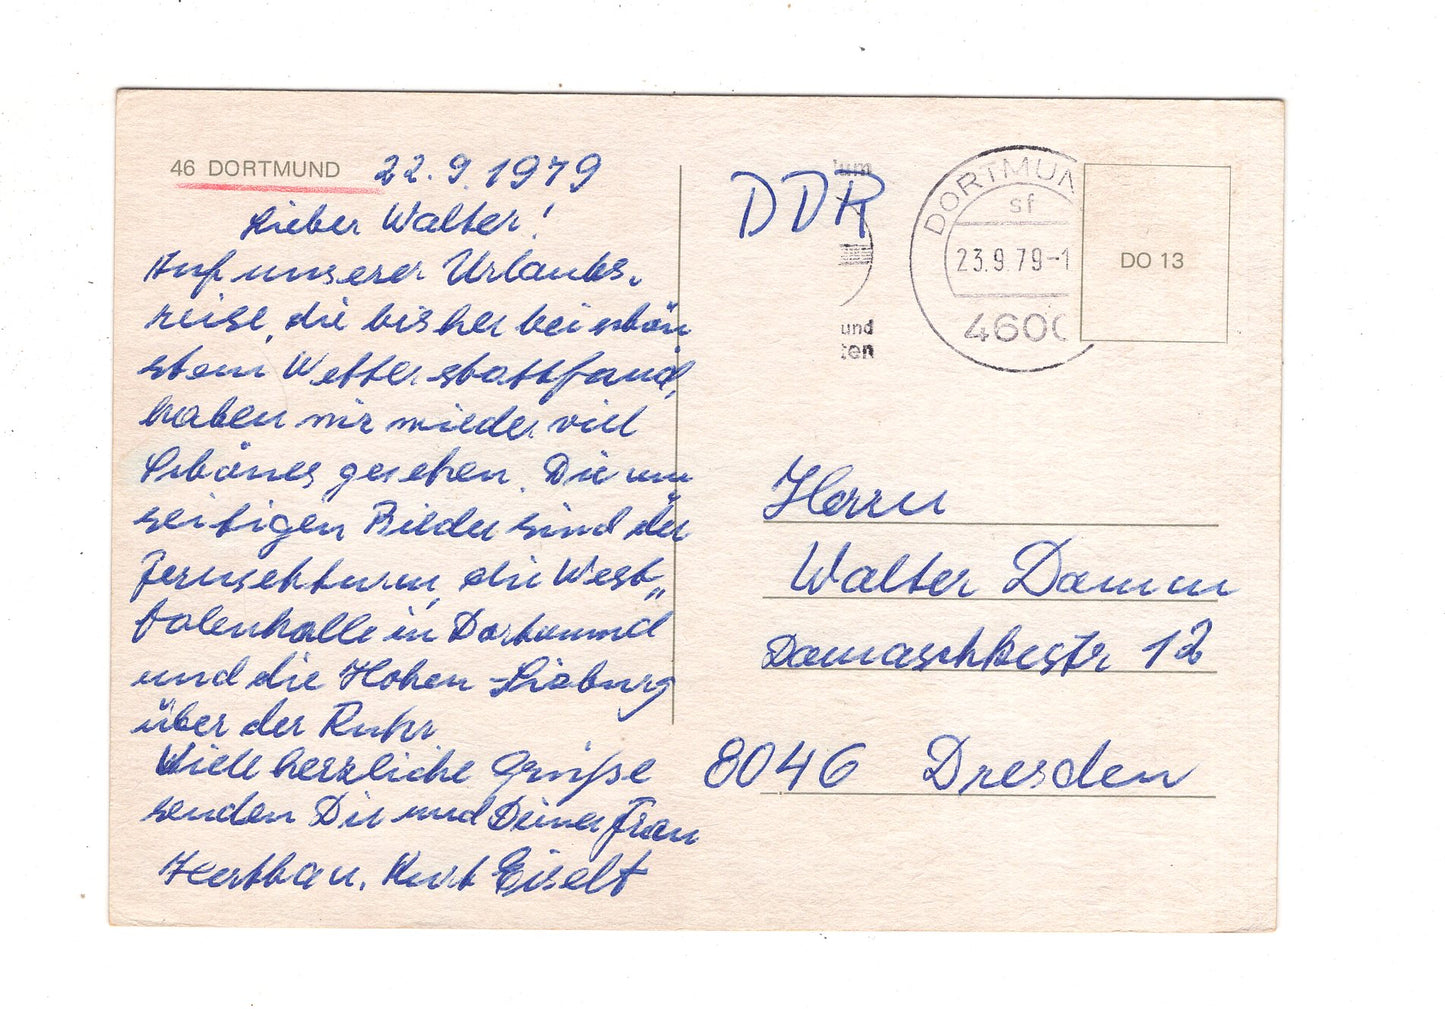 46 DORTMUND 22.9.1979
Lieber Walter!
Auf unserer Urlaubs-
reise, die bisher bei schön
stem Wetter stattfand,
haben wir wieder viel
Schönes gesehen. Die um
seitigen Bilder sind der
Fernsehturm, die West„
falenhalle in Dortmund
und die Hohen-Syburg
über der Ruhr
Viele herzliche Grüße
senden Dir und Deiner Frau
Hertha u. Kurt Eiselt
DDR
um
und
ten
DORTMUN
sf
23.9.79-1
4600
DO 13
Herrn
Walter Damm
Damaschkestr 12
8046 Dresden